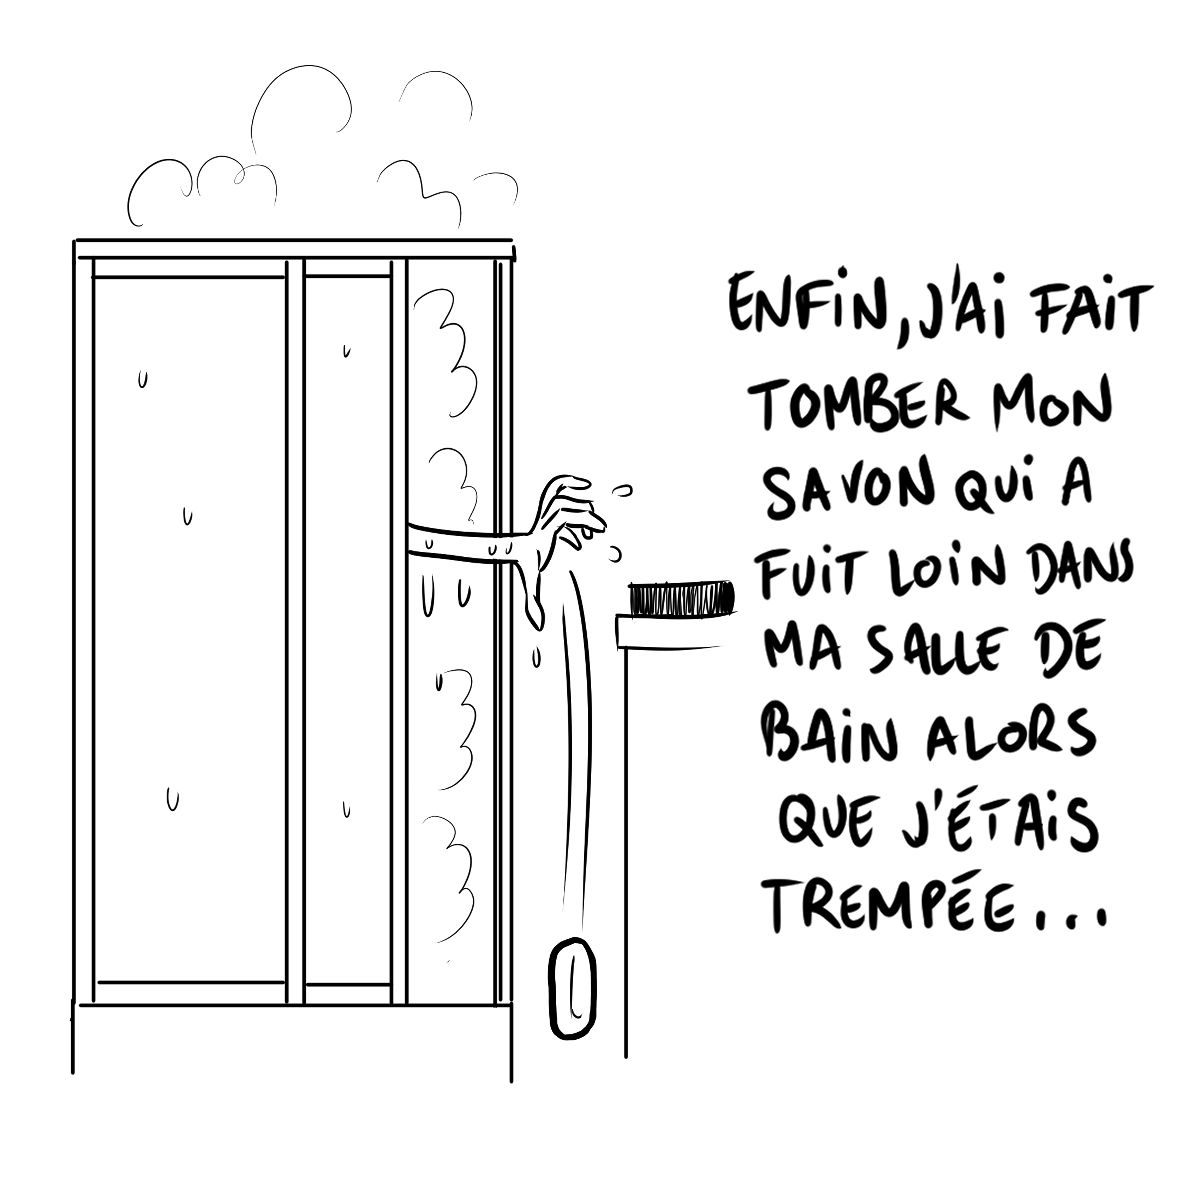 ENFIN, J'AI FAIT
TOMBER MON
SAVON QUI A
FUIT LOIN DANS
MA SALLE DE
BAIN ALORS
QUE J'ÉTAIS
TREMPÉE...